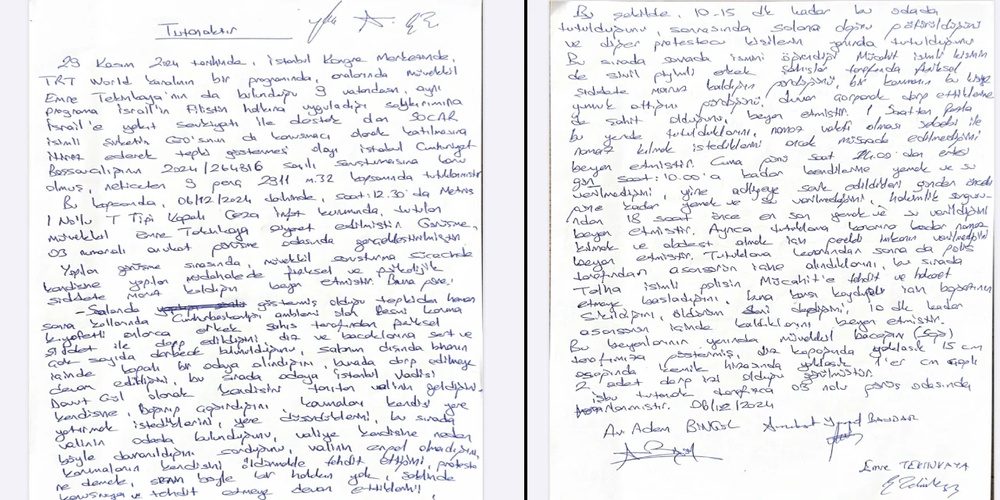 Tutanaktır
29 Kasım 2024 tarihinde, İstanbul Kongre Merkezinde,
TRT World kanalının bir programında, aralarında müvekkil
Emre Tekinkaya'nın da bulunduğu 9 vatandaşın, aynı
programa İsrail'in Filistin halkına uyguladığı
İsrail'e yakıt sevkiyatı ile destek olan SOCAR
isimli şirketin CEO'sunun da konuşmacı olarak katılmasına
itiraz ederek tepki göstermesi olayı İstanbul Cumhuriyet
Başsavcılığının 2024/264816 sayılı soruşturmasına konu
olmuş, neticeten 9 genç 2911 m.32 kapsamında tutuklanmıştır
Bu kapsamda, 06/12/2024 tarihinde, saat: 12.30'da Metris
1 Nolu T Tipi Kapalı Ceza İnfaz kurumunda, tutulan
müvekkil Emre Tekinkaya ziyaret edilmiştir. Görüşme,
03 numaralı avukat görüşme odasında gerçekleştirilmiştir.
Yapılan görüşme sırasında, müvekkil soruşturma sürecinde
kendisine yapılan müdahalede fiziksel ve psikolojik
şiddete maruz kaldığını beyan etmiştir. Buna göre;
- Salonda göstermiş olduğu tepkiden hemen
sonra kollarında Cumhurbaşkanlığı amblemi olan Resmi koruma
kıyafetli onlarca erkek şahıs tarafından fiziksel
şiddet ile darp edildiğini, diz ve bacaklarına sert ve
çok sayıda darbede bulunulduğunu, salonun dışında binanın
içinde kapalı bir odaya alındığını, burada darp edilmeye
devam edildiğini, bu sırada odaya İstanbul Valisi
Davut Gül olarak kendisini tanıtan valinin geldiğini.
kendisine, korumaları kendisi yere
yatırmak istediklerini, yere düşürdüklerini, bu sırada
valinin odada bulunduğunu, valiye kendisine neden
böyle davranıldığını sorduğunu, valinin engel olmadığını,
korumaların kendisini öldürmekle tehdit ettiğini, protesto
ne demek, senin böyle bir hakkın yok, şeklinde
ve tehdit etmeye devam ettiklerini,
Bu şekilde, 10-15 dk kadar bu odada
tutulduğunu, sonrasında salona doğru götürüldüğünü
ve diğer protestocu kişilerin yanında tutulduğunu
Bu sırada orada ismini öğrendiği Mücahit isimli kişinin
de sivil giyimli erkek şahıslar tarafından fiziksel
şiddete maruz kaldığını gördüğünü, bir korumanın bu kişiye
yumruk attığını gördüğünü, duvara çarparak darp ettiklerine
de şahit olduğunu, beyan etmiştir. 1 Saatten fazla
bu yerde tutulduklarını, namaz vakti olması sebebi ile
namaz kılmak istediklerini ancak müsaade edilmediğini
beyan etmiştir. Cuma günü saat 14.00'dan ertesi
gün saat: 10.00'a kadar kendilerine yemek ve su
verilmediğini, yine adliyeye sevk edildikleri günden önceki
güne kadar yemek ve su verilmediğini, hakimlik sorgusu-
ndan 18 saat önce en son yemek ve su verildiğini
beyan etmiştir. Ayrıca tutuklama kararına kadar namaz
kılmak ve abdest almak için gerekli imkanın verilmediğini
beyan etmiştir. Tutuklama kararından sonra da polis
tarafından asansörün içine alındıklarını, bu sırada
Talha isimli polisin Mücahit'e tehdit ve hakaret
etmeye başladığını, buna karşı için boğazının
sıkıldığını, öldürürüm seni dediğini, 10 dk kadar
asansörün içinde kaldıklarını beyan etmiştir.
Bu beyanlarının yanında müvekkil bacağını (sağ)
tarafımıza göstermiş, diz kapağında yaklaşık 15 cm
aşağında kemik hizasında yaklaşık 1'er cm çaplı
2 adet darp izi olduğu görülmüştür.
İşbu tutanak tarafımızca 03 nolu görüş odasında
06/12/2024
Av. Adem BİNGÖL
Emre TEKİNKAYA